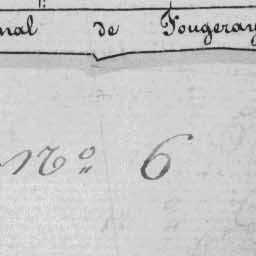 nal de Fougeray
Nº 6